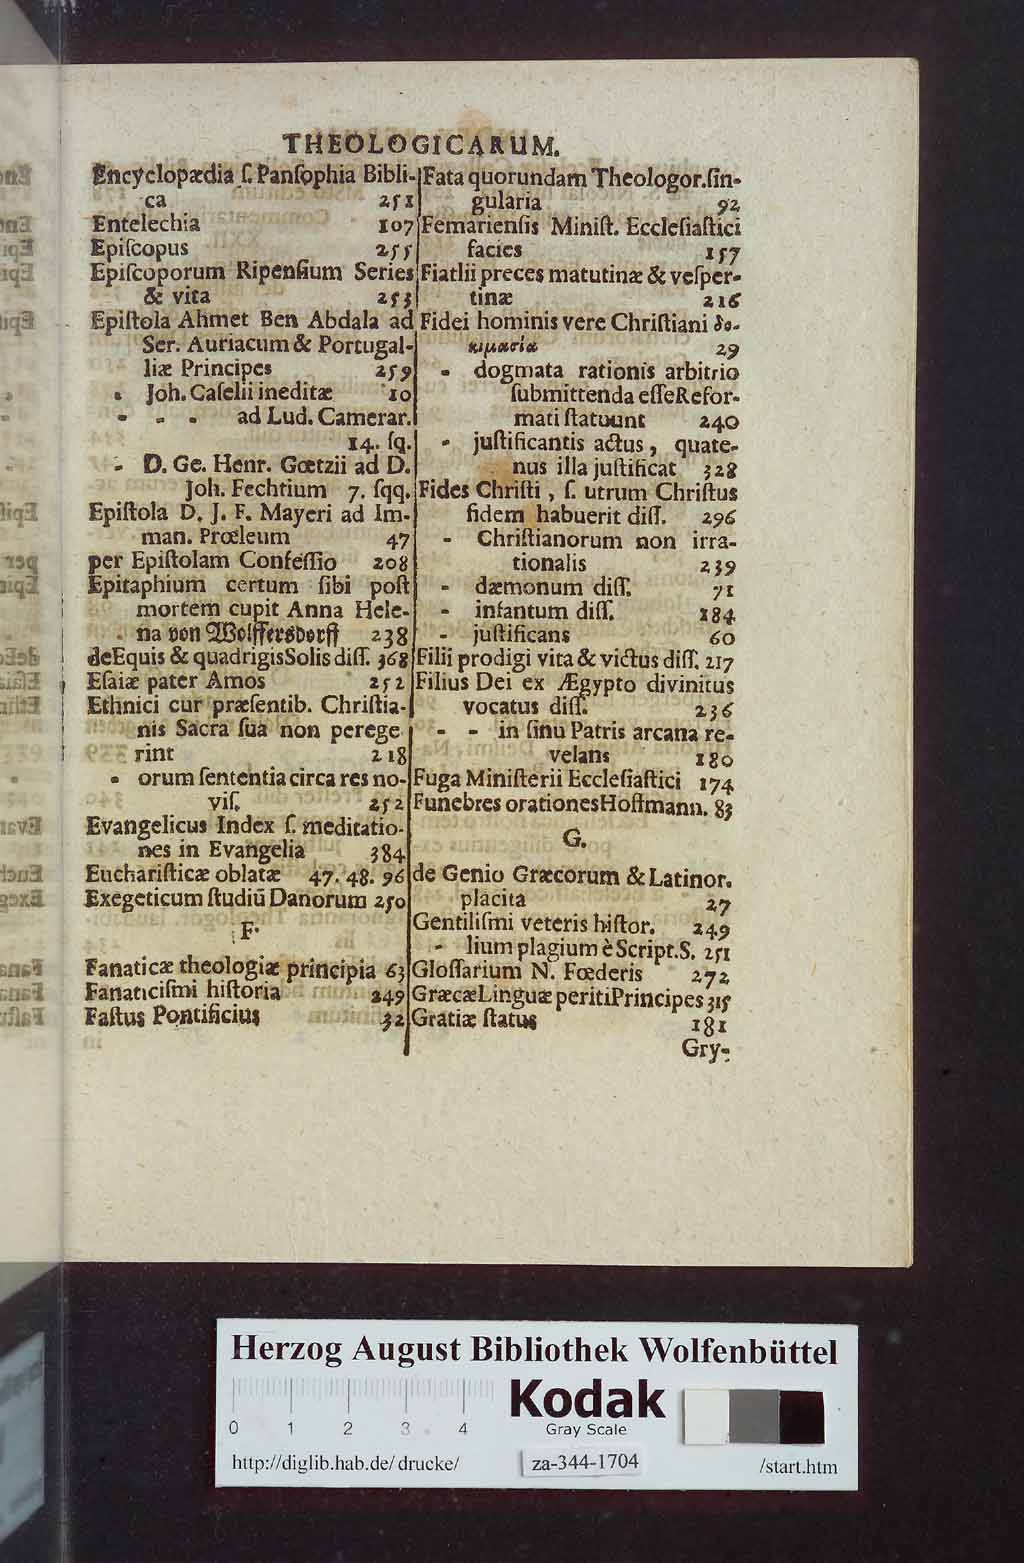 THEOLOGICARUM.
Encyclopædia ſ. Panſophia Bibli-
ca 251
Entelechia 107
Epiſcopus 255
Epiſcoporum Ripenſium Series
& vita 253
Epiſtola Ahmet Ben Abdala ad
Ser. Auriacum & Portugal-
liæ Principes 259
- Joh. Caſelii ineditæ 10
- - - ad Lud. Camerar.
14. ſq.
- D. Ge. Henr. Gœtzii ad D.
Joh. Fechtium 7. ſqq.
Epiſtola D. J. F. Mayeri ad Im-
man. Prœleum 47
per Epiſtolam Confeſſio 208
Epitaphium certum ſibi poſt
mortem cupit Anna Hele-
na von Wolffersdorff 238
de Equis & quadrigis Solis diſſ. 368
Eſaiæ pater Amos 252
Ethnici cur præſentib. Chriſtia-
nis Sacra ſua non perege
rint 218
- orum ſententia circa res no-
viſ. 252
Evangelicus Index ſ. meditatio-
nes in Evangelia 384
Euchariſticæ oblatæ 47. 48. 96
Exegeticum ſtudiū Danorum 250
F.
Fanaticæ theologiæ principia 63
Fanaticiſmi hiſtoria 249
Faſtus Pontificius 32
Fata quorundam Theologor. ſin-
gularia 92
Femarienſis Miniſt. Eccleſiaſtici
facies 157
Fiatlii preces matutinæ & veſper-
tinæ 216
Fidei hominis vere Chriſtiani δο-
κιμασία 29
- dogmata rationis arbitrio
ſubmittenda eſſe Refor-
mati ſtatuunt 240
- juſtificantis actus, quate-
nus illa juſtificat 328
Fides Chriſti, ſ. utrum Chriſtus
fidem habuerit diſſ. 296
- Chriſtianorum non irra-
tionalis 239
- dæmonum diſſ. 71
- infantum diſſ. 184
- juſtificans 60
Filii prodigi vita & victus diſſ. 217
Filius Dei ex Ægypto divinitus
vocatus diſſ. 236
- - in ſinu Patris arcana re-
velans 180
Fuga Miniſterii Eccleſiaſtici 174
Funebres orationes Hoffmann. 83
G.
de Genio Græcorum & Latinor.
placita 27
Gentiliſmi veteris hiſtor. 249
- lium plagium è Script. S. 251
Gloſſarium N. Fœderis 272
Græcæ Linguæ periti Principes 315
Gratiæ ſtatus 181
Gry-
Herzog August Bibliothek Wolfenbüttel
Kodak
Gray Scale
0 1 2 3 4
http://diglib.hab.de/ drucke/ za-344-1704 /start.htm